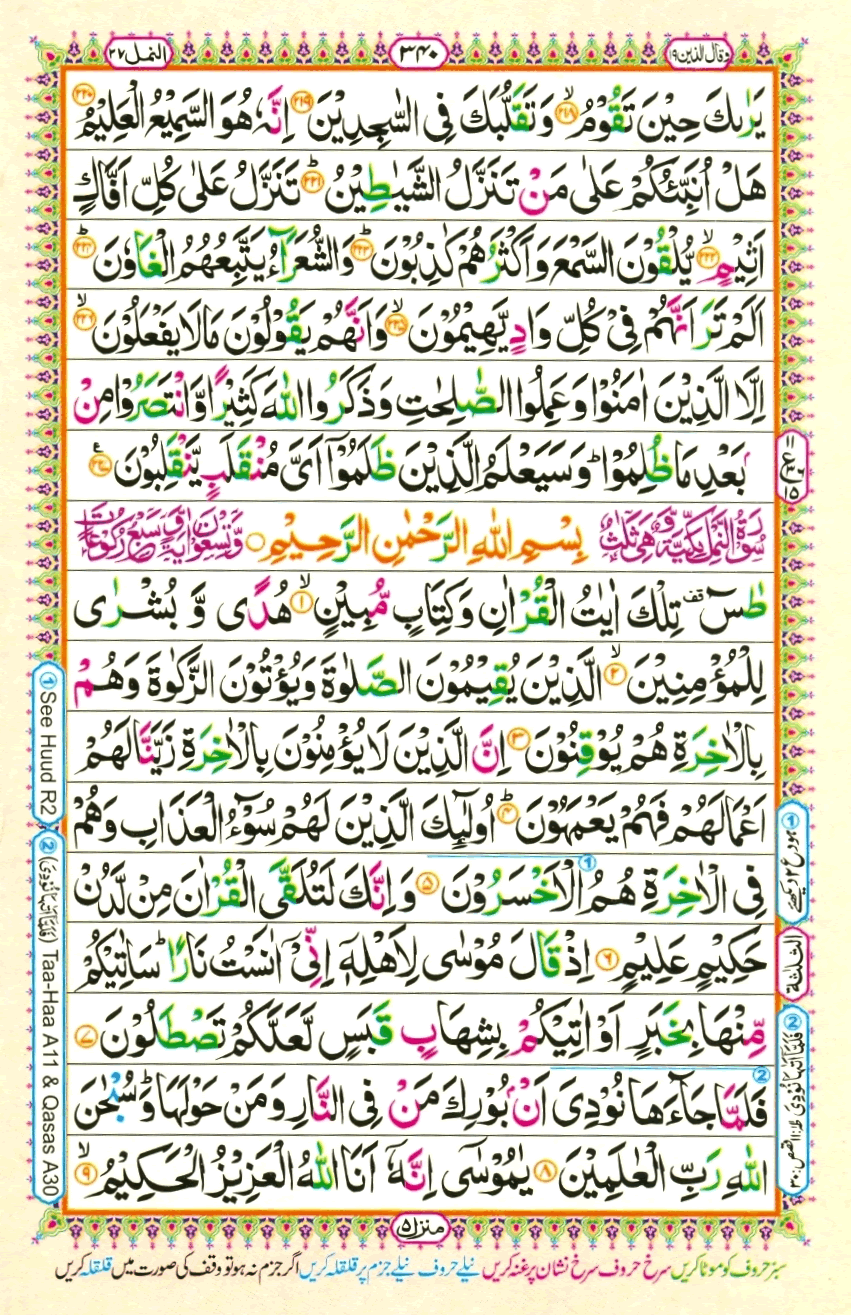 وقال الذین ۱۹
۳۴۰
النمل ۲۷
يَرٰىكَ حِيْنَ تَقُوْمُ ۙ‏﴿۲۱۸﴾ وَتَقَلُّبَكَ فِى السّٰجِدِيْنَ ﴿۲۱۹﴾ اِنَّهٗ هُوَ السَّمِيْعُ الْعَلِيْمُ ﴿۲۲۰﴾
هَلْ اُنَبِّئُكُمْ عَلٰى مَنْ تَنَزَّلُ الشَّيٰطِيْنُ ؕ‏﴿۲۲۱﴾ تَنَزَّلُ عَلٰى كُلِّ اَفَّاكٍ
اَثِيْمٍ ۙ‏﴿۲۲۲﴾ يُّلْقُوْنَ السَّمْعَ وَاَكْثَرُهُمْ كٰذِبُوْنَ ؕ‏﴿۲۲۳﴾ وَالشُّعَرَآءُ يَتَّبِعُهُمُ الْغَاوٗنَ ؕ‏﴿۲۲۴﴾
اَلَمْ تَرَ اَنَّهُمْ فِىْ كُلِّ وَادٍ يَّهِيْمُوْنَ ۙ‏﴿۲۲۵﴾ وَاَنَّهُمْ يَقُوْلُوْنَ مَا لَا يَفْعَلُوْنَ ۙ‏﴿۲۲۶﴾
اِلَّا الَّذِيْنَ اٰمَنُوْا وَعَمِلُوا الصّٰلِحٰتِ وَذَكَرُوا اللّٰهَ كَثِيْرًا وَّانْتَصَرُوْا مِنْۢ
بَعْدِ مَا ظُلِمُوْا ؕ وَسَيَعْلَمُ الَّذِيْنَ ظَلَمُوْۤا اَىَّ مُنْقَلَبٍ يَّنْقَلِبُوْنَ ﴿۲۲۷﴾
سُوْرَةُ النَّمْلِ مَكِّيَّةٌ وَّهِىَ ثَلٰثٌ بِسْمِ اللّٰهِ الرَّحْمٰنِ الرَّحِيْمِ وَّتِسْعُوْنَ اٰيَةً وَّسَبْعُ رُكُوْعَاتٍ
طٰسٓ ۚقف تِلْكَ اٰيٰتُ الْقُرْاٰنِ وَكِتَابٍ مُّبِيْنٍ ۙ‏﴿۱﴾ هُدًى وَّ بُشْرٰى
لِلْمُؤْمِنِيْنَ ۙ‏﴿۲﴾ الَّذِيْنَ يُقِيْمُوْنَ الصَّلٰوةَ وَيُؤْتُوْنَ الزَّكٰوةَ وَهُمْ
بِالْاٰخِرَةِ هُمْ يُوْقِنُوْنَ ﴿۳﴾ اِنَّ الَّذِيْنَ لَا يُؤْمِنُوْنَ بِالْاٰخِرَةِ زَيَّنَّا لَهُمْ
اَعْمَالَهُمْ فَهُمْ يَعْمَهُوْنَ ؕ‏﴿۴﴾ اُولٰٓئِكَ الَّذِيْنَ لَهُمْ سُوْٓءُ الْعَذَابِ وَهُمْ
فِى الْاٰخِرَةِ هُمُ الْاَخْسَرُوْنَ ① ﴿۵﴾ وَاِنَّكَ لَتُلَقَّى الْقُرْاٰنَ مِنْ لَّدُنْ
حَكِيْمٍ عَلِيْمٍ ﴿۶﴾ اِذْ قَالَ مُوْسٰى لِاَهْلِهٖۤ اِنِّىْۤ اٰنَسْتُ نَارًا ؕ سَاٰتِيْكُمْ
مِّنْهَا بِخَبَرٍ اَوْ اٰتِيْكُمْ بِشِهَابٍ قَبَسٍ لَّعَلَّكُمْ تَصْطَلُوْنَ ﴿۷﴾
فَلَمَّا جَآءَهَا نُوْدِىَ اَنْۢ بُوْرِكَ مَنْ فِى النَّارِ وَمَنْ حَوْلَهَا ؕ وَسُبْحٰنَ ②
اللّٰهِ رَبِّ الْعٰلَمِيْنَ ﴿۸﴾ يٰمُوْسٰۤى اِنَّهٗۤ اَنَا اللّٰهُ الْعَزِيْزُ الْحَكِيْمُ ۙ‏﴿۹﴾
ع ۱۵
① ہود ع ۲ دیکھئے
الثلثة
① See Huud R2
② (فَلَمَّا اَتٰىهَا نُوْدِىَ) Taa-Haa A11 & Qasas A30
منزل ۵
سبز حروف کو موٹا کریں سرخ حروف سرخ نشان پر غنہ کریں نیلے حروف نیلے جزم پر قلقلہ کریں اگر جزم نہ ہو تو وقف کی صورت میں قلقلہ کریں